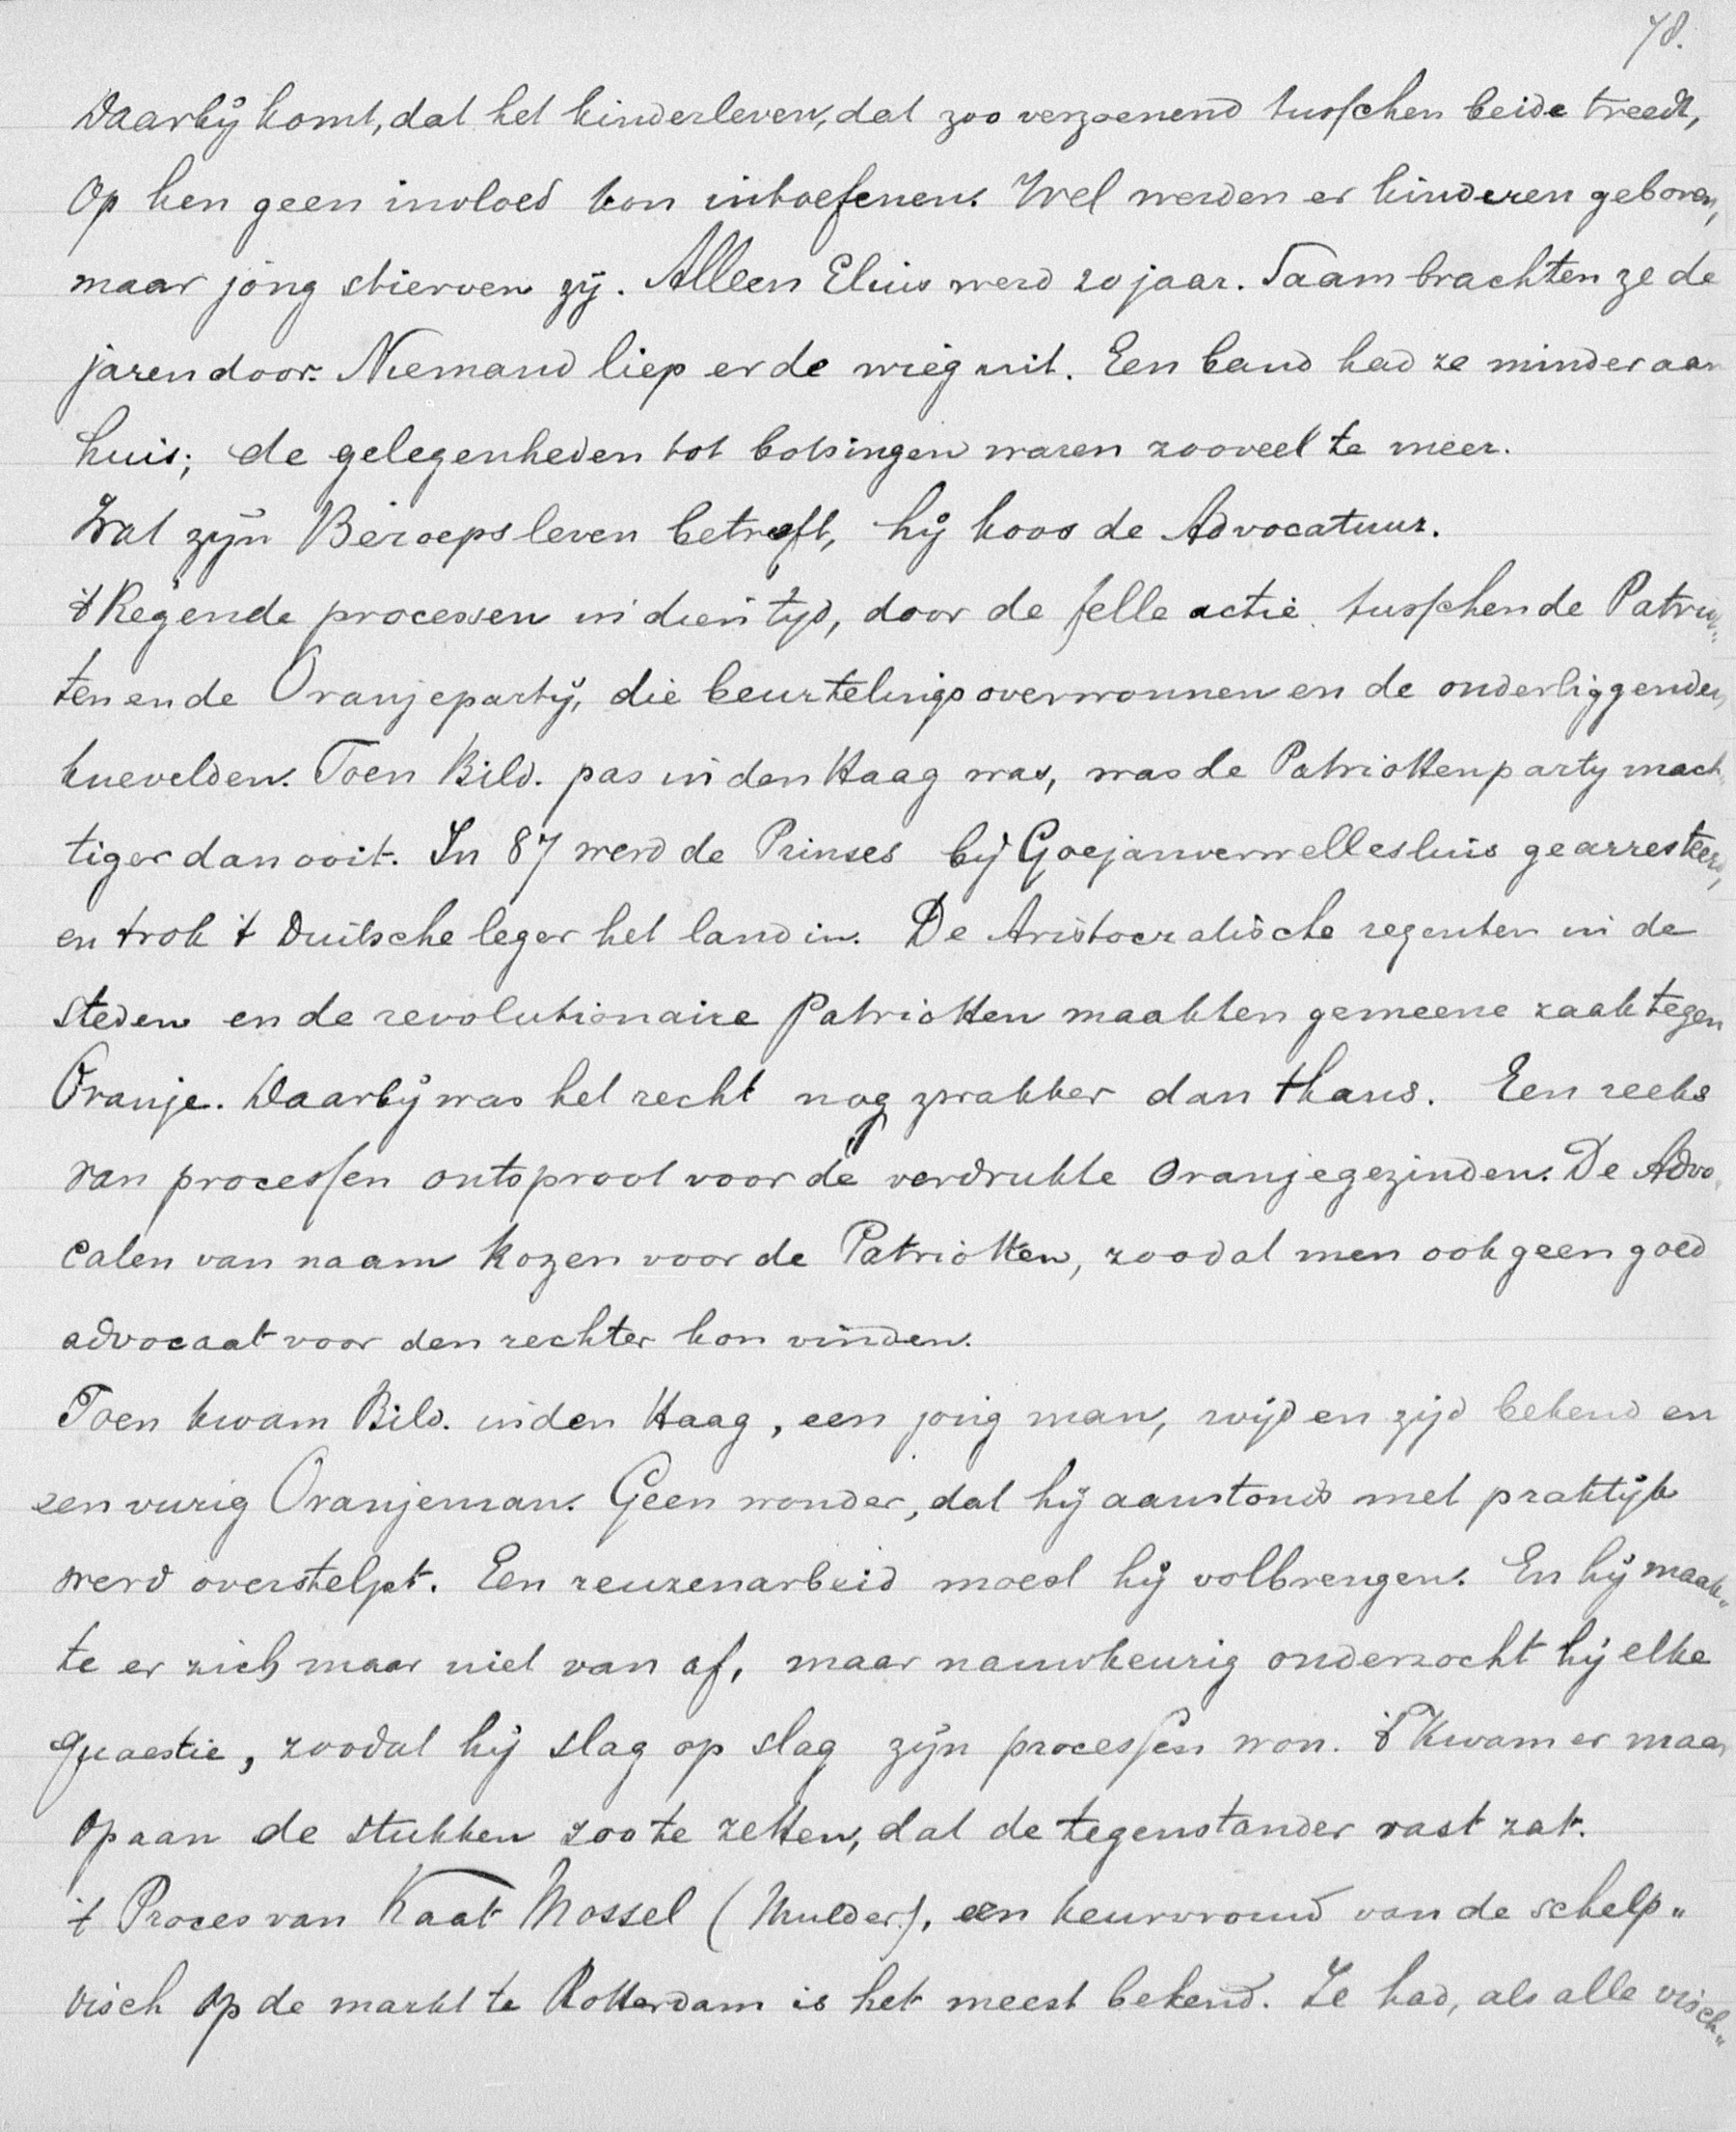 78.
Daarbij komt, dat het kinderleven, dat zoo verzoenend tusschen beide treedt,
op hen geen invloed kon uitoefenen. Wel werden er kinderen geboren,
maar jong stierven zij. Alleen Elius werd 20 jaar. Saam brachten ze de
jaren door. Niemand liep er de wieg uit. Een band had ze minder aan
huis; de gelegenheden tot botsingen waren zooveel te meer.
Wat zijn Beroepsleven betreft, hij koos de Advocatuur.
't Regende processen in dien tijd, door de felle actie tusschen de Patriot-
ten en de Oranjepartij, die beurtelings overwonnen en de onderliggenden
knevelden. Toen Bild. pas in den Haag was, was de Patriottenparty mach-
tiger dan ooit. In 87 werd de Prinses bij Goejanverwellesluis gearresteerd,
en trok 't Duitsche leger het land in. De Aristocratische regenten in de
steden en de revolutionaire Patriotten maakten gemeene zaak tegen
Oranje. Daarbij was het recht nog zwakker dan thans. Een reeks
van processen ontsproot voor de verdrukte Oranjegezinden. De Advo-
caten van naam kozen voor de Patriotten, zoodat men ook geen goed
advocaat voor den rechter kon vinden.
Toen kwam Bild. in den Haag, een jong man, wijd en zijd bekend en
een vurig Oranjeman. Geen wonder, dat hij aanstonds met praktijk
werd overstelpt. Een reuzenarbeid moest hij volbrengen. En hij maak-
te er zich maar niet van af, maar nauwkeurig onderzocht hij elke
quaestie, zoodat hij slag op slag zijn processen won. 't Kwam er maar
op aan de stukken zoo te zetten, dat de tegenstander vast zat.
't Proces van Kaat Mossel (Mulder), een keurvrouw van de schelp-
visch op de markt te Rotterdam is het meest bekend. Ze had, als alle visch-